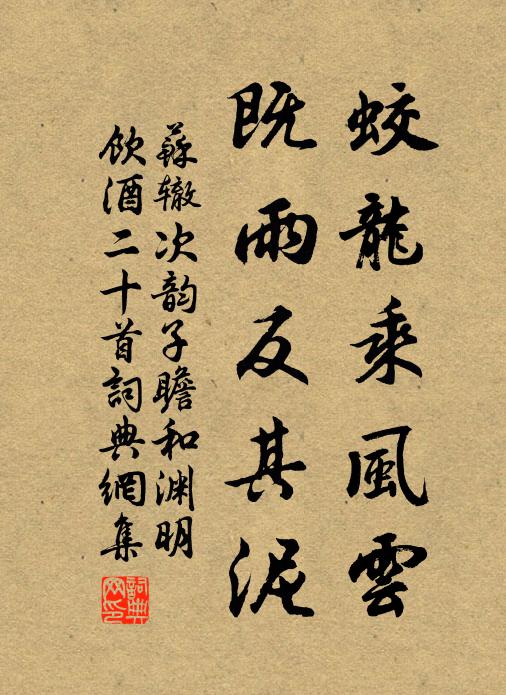 蛟龍乘風雲
既雨反其泥
蘇辙次韵子瞻和渊明
飲酒二十首詞典網集
詞典
网印